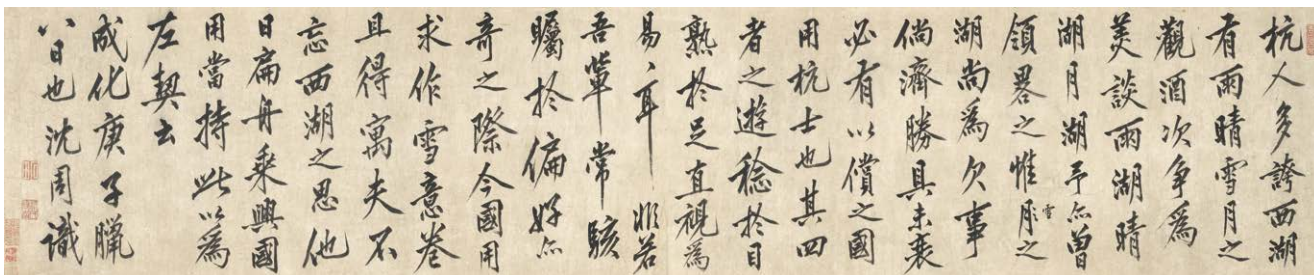 杭人多誇西湖
有雨晴雪月之
觀酒次争為
美談雨湖晴
湖月湖予亦曾
領畧之惟月雪之
湖尚為欠事
倘濟勝具未衰
必有以償之國
用杭士也其四
者之遊稔扵目
熟扵足直視為
易〻耳非若
吾輩常駭
矚扵偏好亦
奇之際今國用
求作雪意卷
且得寓夫不
忘西湖之思他
日扁舟乘興國
用當持此以為
左契云
成化庚子臘
八日也沈周識